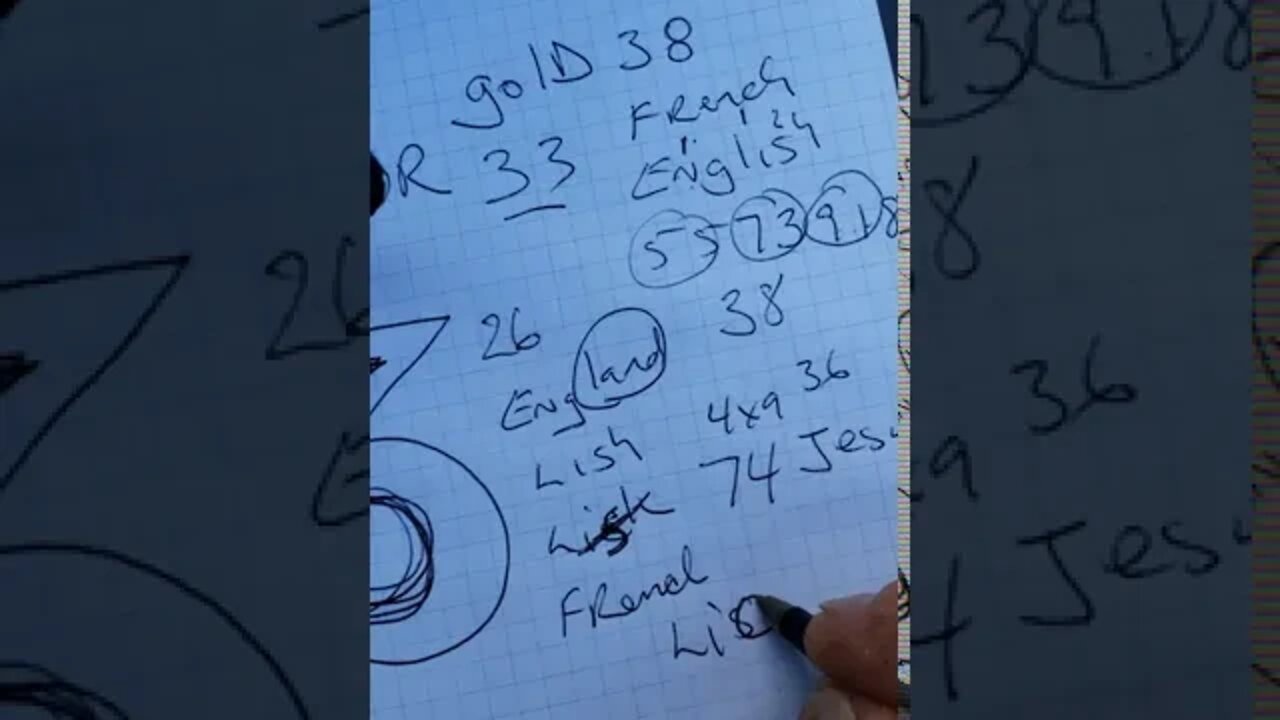 golD 38
R 33 French
English
55 73 91 8
26 38
England
4x9 36
Lish
74 Jesu
French
Lis